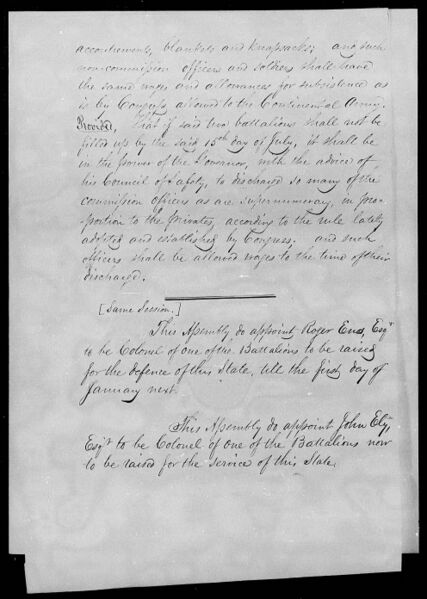 accoutrements, blankets and knapsacks; and such
non-commission officers and soldiers shall have
the same wages and allowances for subsistence as
is by Congress allowed to the Continental Army.
Provided, That if said two battalions shall not be
filled up by the said 15th day of July, it shall be
in the power of the Governor, with the advice of
his Council of Safety, to discharge so many of the
commission officers as are supernumerary, in pro-
portion to the privates, according to the rule lately
adopted and established by Congress: and such
officers shall be allowed wages to the time of their
discharge.
[Same Session.]
This Assembly do appoint Roger Enos, Esqr
to be Colonel of one of the Battalions to be raised
for the defence of this State, till the first day of
January next.
This Assembly do appoint John Ely,
Esqr to be Colonel of one of the Battalions now
to be raised for the service of this State.